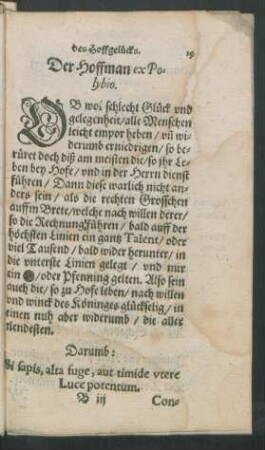 des Hoffgelücks. 19
Der Hoffman ex Po-
lybio.
OB wol schlecht Glück vnd
gelegenheit/alle Menschen
leicht empor heben / vñ wi-
derumb erniedrigen / so be-
rüret doch diß am meisten die/so jhr Le-
ben bey Hofe / vnd in der Herrn dienst
führen / Dann diese warlich nicht an-
ders sein / als die rechten Grosschen
auffm Brete/welche nach willen derer/
so die Rechnung führen / bald auff der
höchsten Linien ein gantz Talent / oder
viel Tausend / bald wider herunter / in
die vnterste Linien gelegt / vnd nur
ein /oder Pfenning gelten. Also sein
auch die / so zu Hofe leben / nach willen
vnd winck des Köninges glückselig / in
einen nuh aber widerumb / die aller
elendesten.
Darumb:
Si sapis, alta fuge, aut timide vtere
Luce potentum.
B iij Con-